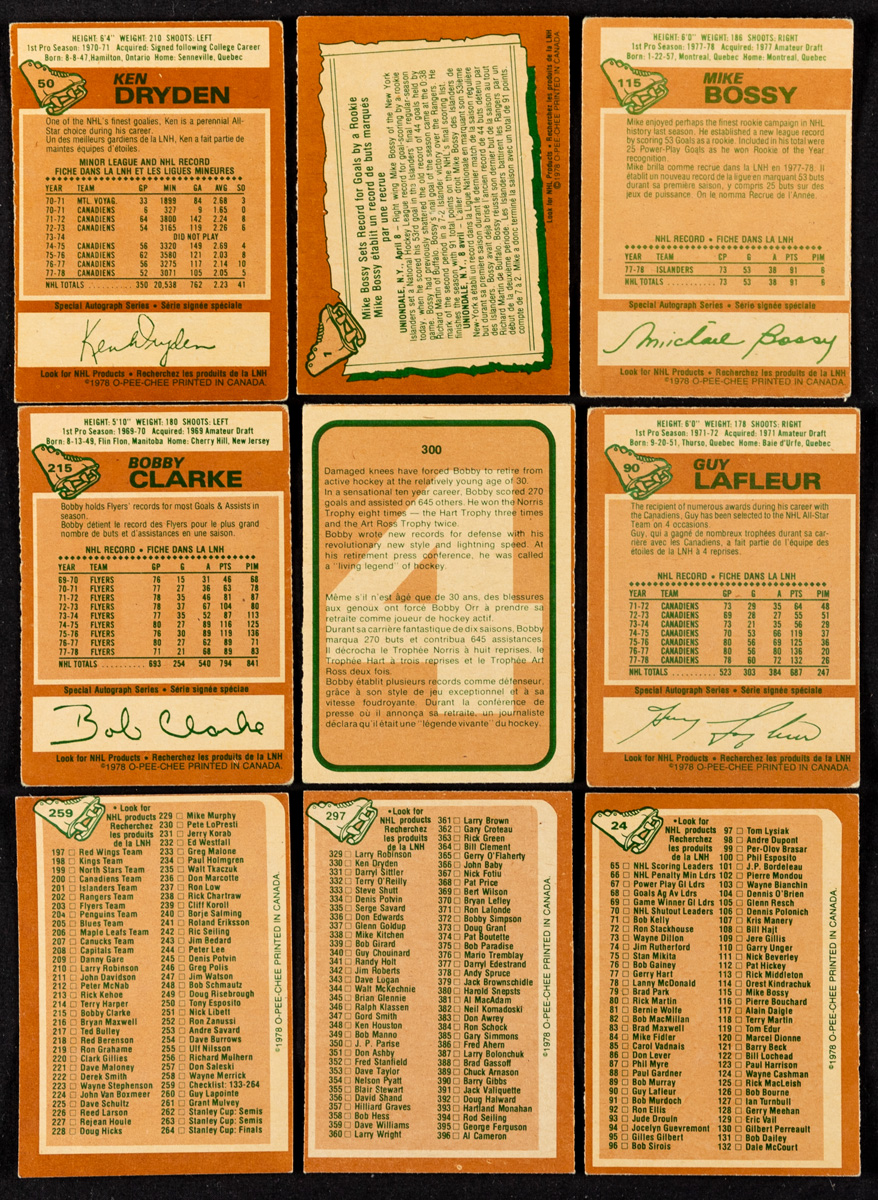 HEIGHT: 6'4" WEIGHT: 210 SHOOTS: LEFT
1st Pro Season: 1970-71 Acquired: Signed following College Career
Born: 8-8-47, Hamilton, Ontario Home: Senneville, Quebec
50
KEN
DRYDEN
One of the NHL's finest goalies, Ken is a perennial All-
Star choice during his career.
Un des meilleurs gardiens de la LNH, Ken a fait partie de
maintes équipes d'étoiles.
MINOR LEAGUE AND NHL RECORD
FICHE DANS LA LNH ET LES LIGUES MINEURES
YEAR TEAM GP MIN GA AVG SO
70-71 MTL. VOYAG. 33 1899 84 2.68 3
70-71 CANADIENS 6 327 9 1.65 0
71-72 CANADIENS 64 3800 142 2.24 8
72-73 CANADIENS 54 3165 119 2.26 6
73-74 DID NOT PLAY
74-75 CANADIENS 56 3320 149 2.69 4
75-76 CANADIENS 62 3580 121 2.03 8
76-77 CANADIENS 56 3275 117 2.14 10
77-78 CANADIENS 52 3071 105 2.05 5
NHL TOTALS 350 20,538 762 2.23 41
Special Autograph Series • Série signée spéciale
Ken Dryden
Look for NHL Products • Recherchez les produits de la LNH
©1978 O-PEE-CHEE PRINTED IN CANADA.
1
Mike Bossy Sets Record for Goals by a Rookie
Mike Bossy établit un record de buts marqués
par une recrue
UNIONDALE, N.Y., April 8 – Right wing Mike Bossy of the New York
Islanders set a National Hockey League record for goal-scoring by a rookie
today, when he scored his 53rd goal in this Islanders' final regular-season
game. Bossy had previously shattered the old record of 44 goals held by
Richard Martin of Buffalo. Bossy's final goal of the season came at the 0:38
mark of the second period in a 7-2 Islander victory over the Rangers. He
finishes the season with 91 total points on the NHL's final scoring list.
UNIONDALE, N.Y., 8 avril – L'ailier droit Mike Bossy des Islanders de
New-York a établi un record de la Ligue Nationale en marquant son 53ième
but durant sa première saison durant le dernier match de la saison régulière
des Islanders. Bossy avait déjà brisé l'ancien record de 44 buts détenu par
Richard Martin de Buffalo. Bossy réussit son dernier but de la saison au tout
début de la deuxième période. Les Islanders battirent les Rangers par un
compte de 7 à 2. Mike a donc terminé la saison avec un total de 91 points.
Look for NHL Products • Recherchez les produits de la LNH
©1978 O-PEE-CHEE PRINTED IN CANADA.
HEIGHT: 6'0" WEIGHT: 186 SHOOTS: RIGHT
1st Pro Season: 1977-78 Acquired: 1977 Amateur Draft
Born: 1-22-57, Montreal, Quebec Home: Montreal, Quebec
115
MIKE
BOSSY
Mike enjoyed perhaps the finest rookie campaign in NHL
history last season. He established a new league record
by scoring 53 Goals as a rookie. Included in his total were
25 Power-Play Goals as he won Rookie of the Year
recognition.
Mike brilla comme recrue dans la LNH en 1977-78. Il
établit un nouveau record de la ligue en marquant 53 buts
durant sa première saison, y compris 25 buts sur des
jeux de puissance. On le nomma Recrue de l'Année.
NHL RECORD • FICHE DANS LA LNH
YEAR TEAM GP G A PTS PIM
77-78 ISLANDERS 73 53 38 91 6
NHL TOTALS 73 53 38 91 6
Special Autograph Series • Série signée spéciale
Michael Bossy
Look for NHL Products • Recherchez les produits de la LNH
©1978 O-PEE-CHEE PRINTED IN CANADA.
HEIGHT: 5'10" WEIGHT: 180 SHOOTS: LEFT
1st Pro Season: 1969-70 Acquired: 1969 Amateur Draft
Born: 8-13-49, Flin Flon, Manitoba Home: Cherry Hill, New Jersey
215
BOBBY
CLARKE
Bobby holds Flyers' records for most Goals & Assists in
season.
Bobby détient le record des Flyers pour le plus grand
nombre de buts et d'assistances en une saison.
NHL RECORD • FICHE DANS LA LNH
YEAR TEAM GP G A PTS PIM
69-70 FLYERS 76 15 31 46 68
70-71 FLYERS 77 27 36 63 78
71-72 FLYERS 78 35 46 81 87
72-73 FLYERS 78 37 67 104 80
73-74 FLYERS 77 35 52 87 113
74-75 FLYERS 80 27 89 116 125
75-76 FLYERS 76 30 89 119 136
76-77 FLYERS 80 27 62 89 71
77-78 FLYERS 71 21 68 89 83
NHL TOTALS 693 254 540 794 841
Special Autograph Series • Série signée spéciale
Bob Clarke
Look for NHL Products • Recherchez les produits de la LNH
©1978 O-PEE-CHEE PRINTED IN CANADA.
300
4
Damaged knees have forced Bobby to retire from
active hockey at the relatively young age of 30.
In a sensational ten year career, Bobby scored 270
goals and assisted on 645 others. He won the Norris
Trophy eight times — the Hart Trophy three times
and the Art Ross Trophy twice.
Bobby wrote new records for defense with his
revolutionary new style and lightning speed. At
his retirement press conference, he was called
a "living legend" of hockey.
Même s'il n'est âgé que de 30 ans, des blessures
aux genoux ont forcé Bobby Orr à prendre sa
retraite comme joueur de hockey actif.
Durant sa carrière fantastique de dix saisons, Bobby
marqua 270 buts et contribua 645 assistances.
Il décrocha le Trophée Norris à huit reprises, le
Trophée Hart à trois reprises et le Trophée Art
Ross deux fois.
Bobby établit plusieurs records comme défenseur,
grâce à son style de jeu exceptionnel et à sa
vitesse foudroyante. Durant la conférence de
presse où il annonça sa retraite, un journaliste
déclara qu'il était une "légende vivante" du hockey.
HEIGHT: 6'0" WEIGHT: 178 SHOOTS: RIGHT
1st Pro Season: 1971-72 Acquired: 1971 Amateur Draft
Born: 9-20-51, Thurso, Quebec Home: Baie d'Urfe, Quebec
90
GUY
LAFLEUR
The recipient of numerous awards during his career with
the Canadiens, Guy has been selected to the NHL All-Star
Team on 4 occasions.
Guy, qui a gagné de nombreux trophées durant sa car-
rière avec les Canadiens, a fait partie de l'équipe des
étoiles de la LNH à 4 reprises.
NHL RECORD • FICHE DANS LA LNH
YEAR TEAM GP G A PTS PIM
71-72 CANADIENS 73 29 35 64 48
72-73 CANADIENS 69 28 27 55 51
73-74 CANADIENS 73 21 35 56 29
74-75 CANADIENS 70 53 66 119 37
75-76 CANADIENS 80 56 69 125 36
76-77 CANADIENS 80 56 80 136 20
77-78 CANADIENS 78 60 72 132 26
NHL TOTALS 523 303 384 687 247
Special Autograph Series • Série signée spéciale
Guy Lafleur
Look for NHL Products • Recherchez les produits de la LNH
©1978 O-PEE-CHEE PRINTED IN CANADA.
259
•Look for
NHL products
Recherchez
les produits
de la LNH
197 Red Wings Team
198 Kings Team
199 North Stars Team
200 Canadiens Team
201 Islanders Team
202 Rangers Team
203 Flyers Team
204 Penguins Team
205 Blues Team
206 Maple Leafs Team
207 Canucks Team
208 Capitals Team
209 Danny Gare
210 Larry Robinson
211 John Davidson
212 Peter McNab
213 Rick Kehoe
214 Terry Harper
215 Bobby Clarke
216 Bryan Maxwell
217 Ted Bulley
218 Red Berenson
219 Ron Grahame
220 Clark Gillies
221 Dave Maloney
222 Derek Smith
223 Wayne Stephenson
224 John Van Boxmeer
225 Dave Schultz
226 Reed Larson
227 Rejean Houle
228 Doug Hicks
229 Mike Murphy
230 Pete LoPresti
231 Jerry Korab
232 Ed Westfall
233 Greg Malone
234 Paul Holmgren
235 Walt Tkaczuk
236 Don Marcotte
237 Ron Low
238 Rick Chartraw
239 Cliff Koroll
240 Borje Salming
241 Roland Eriksson
242 Ric Seiling
243 Jim Bedard
244 Peter Lee
245 Denis Potvin
246 Greg Polis
247 Jim Watson
248 Bob Schmautz
249 Doug Risebrough
250 Tony Esposito
251 Nick Libett
252 Ron Zanussi
253 Andre Savard
254 Dave Burrows
255 Ulf Nilsson
256 Richard Mulhern
257 Don Saleski
258 Wayne Merrick
259 Checklist: 133-264
260 Guy Lapointe
261 Grant Mulvey
262 Stanley Cup: Semis
263 Stanley Cup: Semis
264 Stanley Cup: Finals
©1978 O-PEE-CHEE PRINTED IN CANADA.
297
•Look for
NHL products
Recherchez
les produits
de la LNH
329 Larry Robinson
330 Ken Dryden
331 Darryl Sittler
332 Terry O'Reilly
333 Steve Shutt
334 Denis Potvin
335 Serge Savard
336 Don Edwards
337 Glenn Goldup
338 Mike Kitchen
339 Bob Girard
340 Guy Chouinard
341 Randy Holt
342 Jim Roberts
343 Dave Logan
344 Walt McKechnie
345 Brian Glennie
346 Ralph Klassen
347 Gord Smith
348 Ken Houston
349 Bob Manno
350 J. P. Parise
351 Don Ashby
352 Fred Stanfield
353 Dave Taylor
354 Nelson Pyatt
355 Blair Stewart
356 David Shand
357 Hilliard Graves
358 Bob Hess
359 Dave Williams
360 Larry Wright
361 Larry Brown
362 Gary Croteau
363 Rick Green
364 Bill Clement
365 Gerry O'Flaherty
366 John Baby
367 Nick Fotiu
368 Pat Price
369 Bert Wilson
370 Bryan Lefley
371 Ron Lalonde
372 Bobby Simpson
373 Doug Grant
374 Pat Boutette
375 Bob Paradise
376 Mario Tremblay
377 Darryl Edestrand
378 Andy Spruce
379 Jack Brownschidle
380 Harold Snepsts
381 Al MacAdam
382 Neil Komadoski
383 Don Awrey
384 Ron Schock
385 Gary Simmons
386 Fred Ahern
387 Larry Bolonchuk
388 Brad Gassoff
389 Chuck Arnason
390 Barry Gibbs
391 Jack Valiquette
392 Doug Halward
393 Hartland Monahan
394 Rod Seiling
395 George Ferguson
396 Al Cameron
©1978 O-PEE-CHEE PRINTED IN CANADA.
24
•Look for
NHL products
Recherchez
les produits
de la LNH
65 NHL Scoring Leaders
66 NHL Penalty Min Ldrs
67 Power Play Gl Ldrs
68 Goals Ag Av Ldrs
69 Game Winner Gl Ldrs
70 NHL Shutout Leaders
71 Bob Kelly
72 Ron Stackhouse
73 Wayne Dillon
74 Jim Rutherford
75 Stan Mikita
76 Bob Gainey
77 Gerry Hart
78 Lanny McDonald
79 Brad Park
80 Rick Martin
81 Bernie Wolfe
82 Bob MacMillan
83 Brad Maxwell
84 Mike Fidler
85 Carol Vadnais
86 Don Lever
87 Phil Myre
88 Paul Gardner
89 Bob Murray
90 Guy Lafleur
91 Bob Murdoch
92 Ron Ellis
93 Jude Drouin
94 Jocelyn Guevremont
95 Gilles Gilbert
96 Bob Sirois
97 Tom Lysiak
98 Andre Dupont
99 Per-Olov Brasar
100 Phil Esposito
101 J.P. Bordeleau
102 Pierre Mondou
103 Wayne Bianchin
104 Dennis O'Brien
105 Glenn Resch
106 Dennis Polonich
107 Kris Manery
108 Bill Hajt
109 Jere Gillis
110 Garry Unger
111 Nick Beverley
112 Pat Hickey
113 Rick Middleton
114 Orest Kindrachuk
115 Mike Bossy
116 Pierre Bouchard
117 Alain Daigle
118 Terry Martin
119 Tom Edur
120 Marcel Dionne
121 Barry Beck
122 Bill Lochead
123 Paul Harrison
124 Wayne Cashman
125 Rick MacLeish
126 Bob Bourne
127 Ian Turnbull
128 Gerry Meehan
129 Eric Vail
130 Gilbert Perreault
131 Bob Dailey
132 Dale McCourt
©1978 O-PEE-CHEE PRINTED IN CANADA.